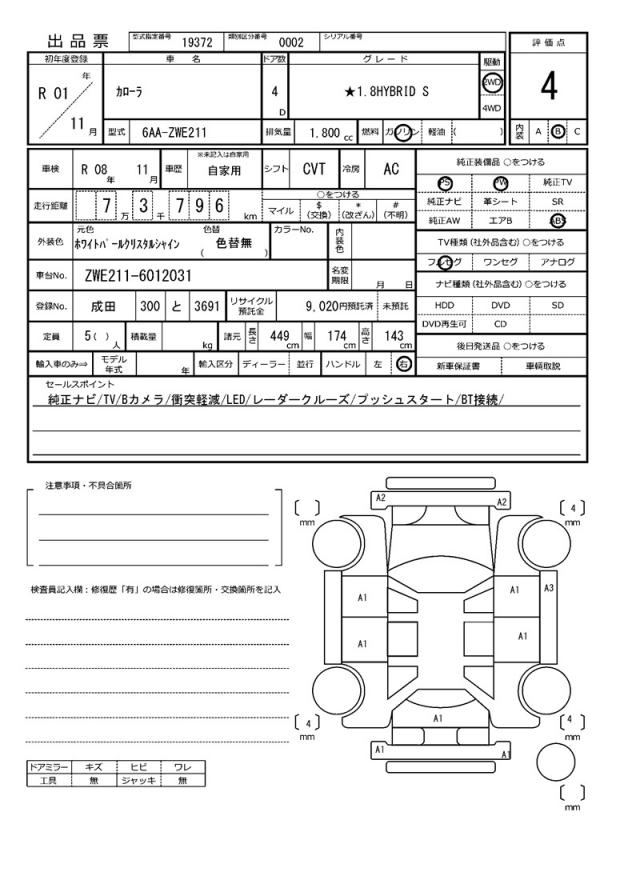 出品票 型式指定番号 19372 類別区分番号 0002 シリアル番号
初年度登録 車名 ドア数 グレード 駆動 評価点
R 01 年 11 月 カローラ 4 D ★1.8HYBRID S 2WD 4WD 4
型式 6AA-ZWE211 排気量 1.800 cc 燃料 ガソリン 軽油 ( ) 内装 A B C
車検 R 08 年 11 月 車歴 ※未記入は自家用 自家用 シフト CVT 冷房 AC
走行距離 7 万 3 千 7 9 6 km
○をつける
マイル $(交換) *(改ざん) #(不明)
外装色 元色 ホワイトパールクリスタルシャイン 色替 色替無 ( ) カラーNo. 内装色
車台No. ZWE211-6012031 名変期限 月 日
登録No. 成田 300 と 3691 リサイクル預託金 9,020円預託済 未預託
定員 5( ) 人 積載量 kg 諸元 長さ 449 cm 幅 174 cm 高さ 143 cm
輸入車のみ⇒ モデル年式 年 輸入区分 ディーラー 並行 ハンドル 左 右
純正装備品 ○をつける
PS PW 純正TV
純正ナビ 革シート SR
純正AW エアB ABS
TV種類(社外品含む)○をつける
フルセグ ワンセグ アナログ
ナビ種類(社外品含む)○をつける
HDD DVD SD
DVD再生可 CD
後日発送品 ○をつける
新車保証書 車輌取説
セールスポイント
純正ナビ/TV/Bカメラ/衝突軽減/LED/レーダークルーズ/プッシュスタート/BT接続/
注意事項・不具合箇所
検査員記入欄:修復歴「有」の場合は修復箇所・交換箇所を記入
ドアミラー キズ ヒビ ワレ
工具 無 ジャッキ 無
A2 A2
[ ] mm [ 4 ] mm
A1 A1 A3
A1 A1
A1
[ 4 ] mm [ 4 ] mm
A1 A1
[ ] mm